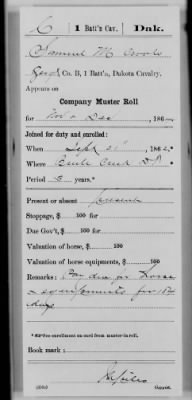 C | 1 Batt'n Cav. | Dak.
Samuel M
Co. B, 1 Batt'n, Dakota Cavalry.
Appears on
Company Muster Roll
for Nov & Dec, 186
Joined for duty and enrolled:
When Sept, 186
Where Creek D.T.
Period 3 years.*
Present or absent Present
Stoppage, $ 100 for
Due Gov't, $ 100 for
Valuation of horse, $ 100
Valuation of horse equipments, $ 100
Remarks: Pay due on horse
& equipments for 184
days
*See enrollment on card from muster-in roll.
Book mark:
Copyist.